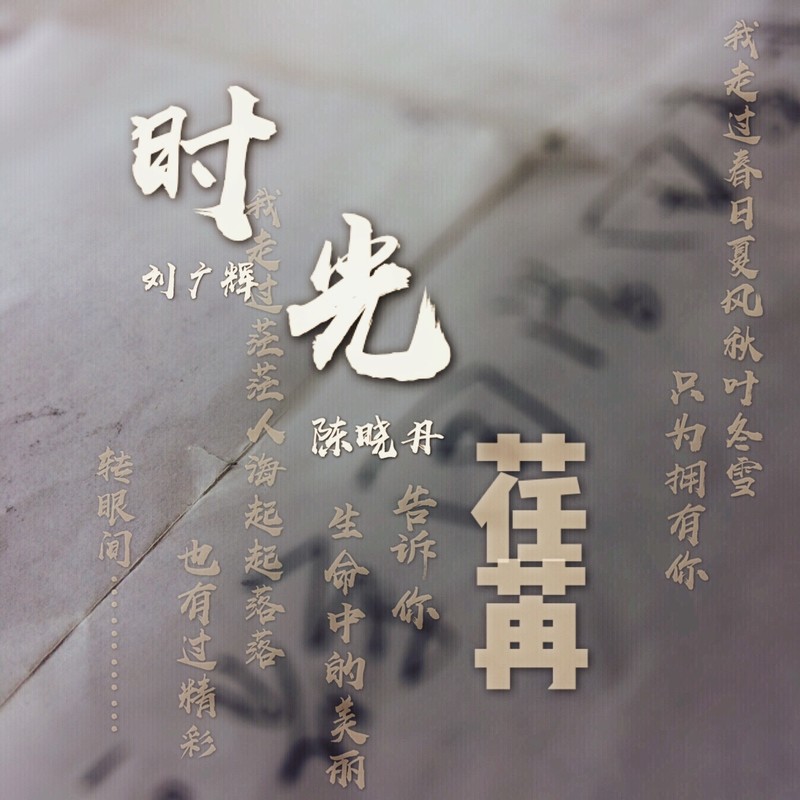 时光
荏苒
刘广辉
陈晓丹
我走过春日夏风秋叶冬雪
只为拥有你
告诉你
生命中的美丽
我走过茫茫人海起起落落
也有过精彩
转眼间………